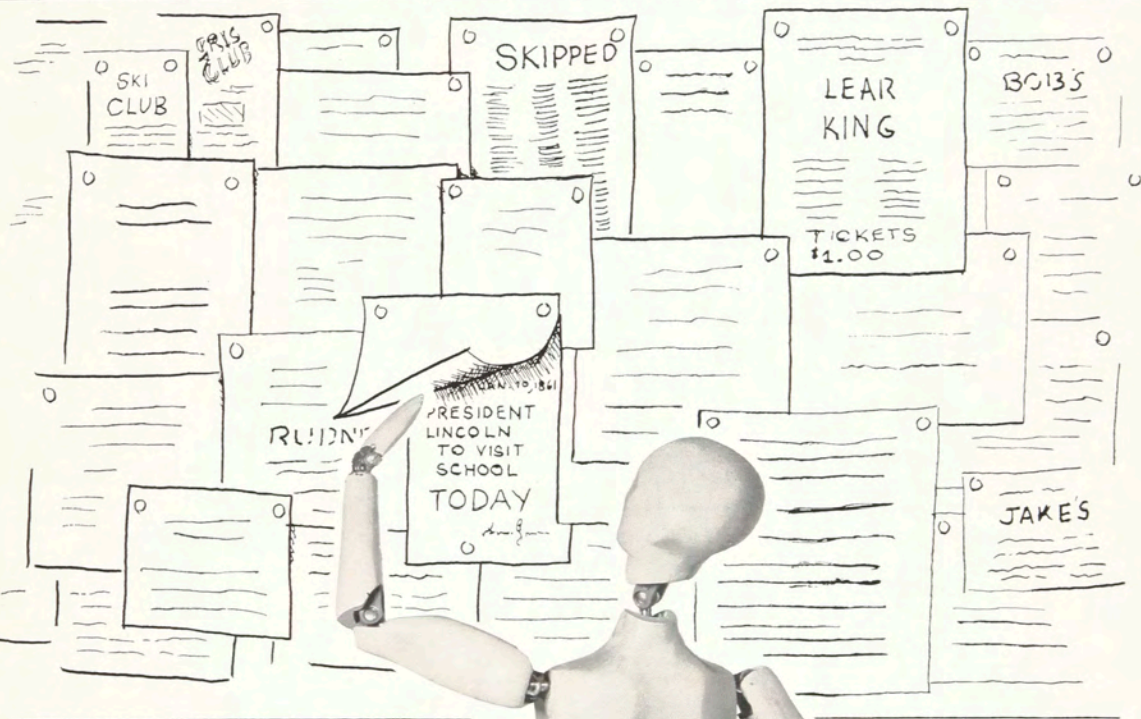 SKI
CLUB
CLUB
SKIPPED
LEAR
KING
TICKETS
$1.00
BOB'S
JAN. 10, 1861
PRESIDENT
LINCOLN
TO VISIT
SCHOOL
TODAY
JAKE'S